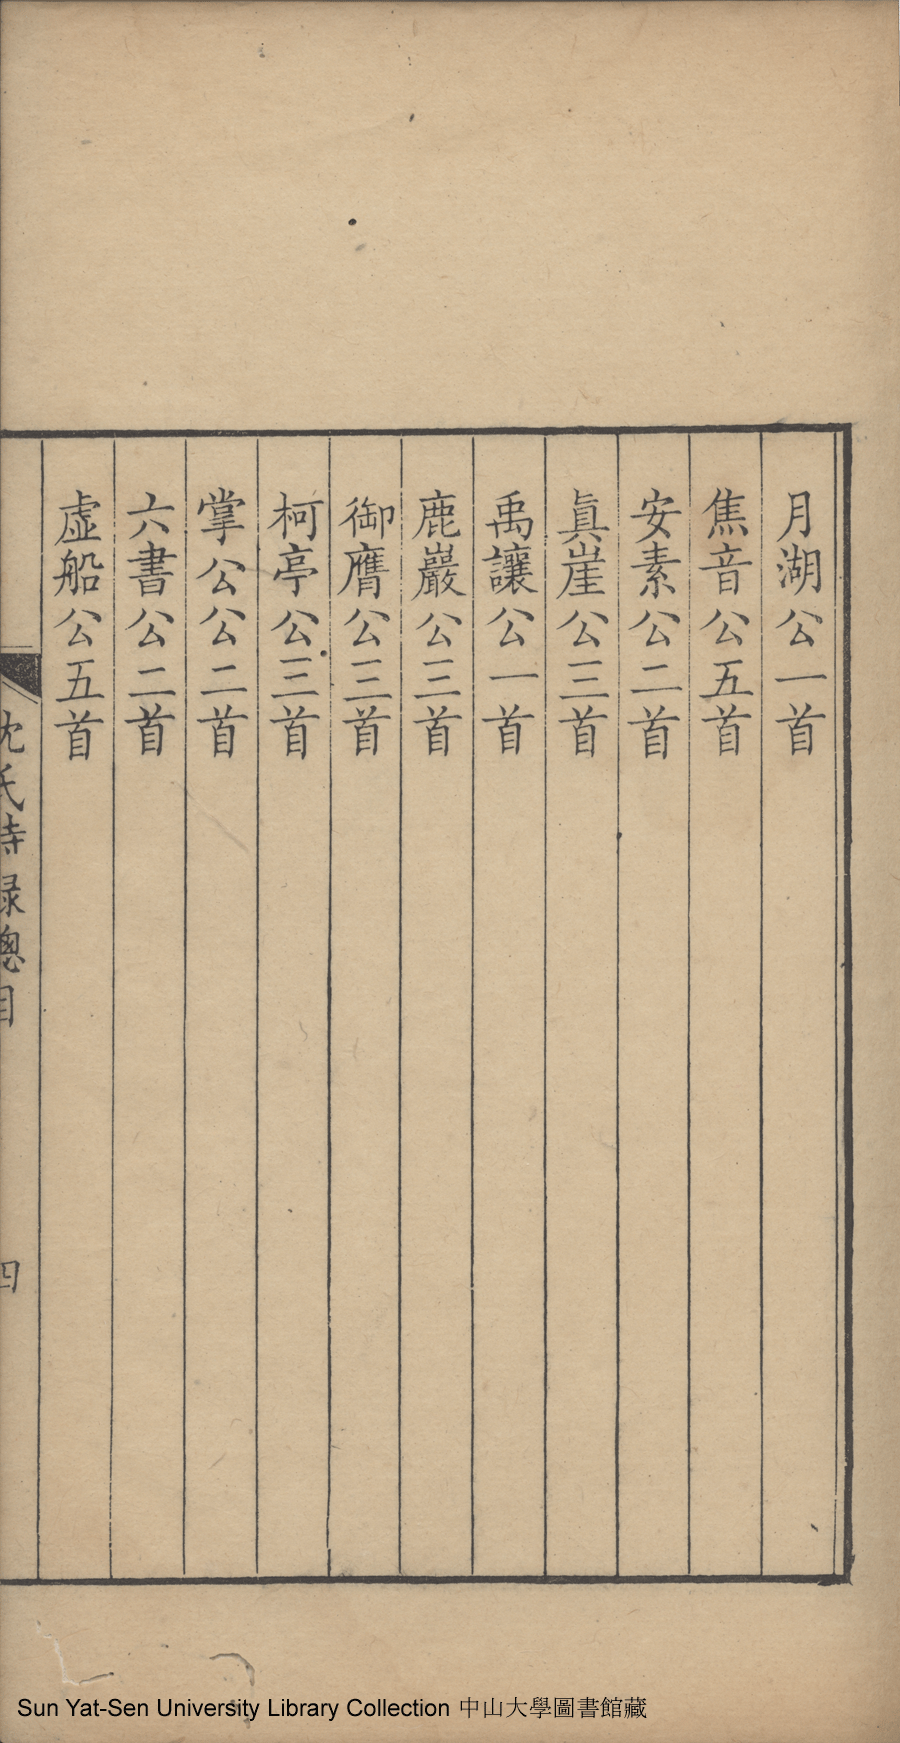 月湖公一首
焦音公五首
安素公二首
眞崖公三首
禹讓公一首
鹿巖公三首
御膺公三首
柯亭公三首
掌公公二首
六書公二首
虛船公五首
沈氏詩録總目
四
Sun Yat-Sen University Library Collection 中山大學圖書館藏